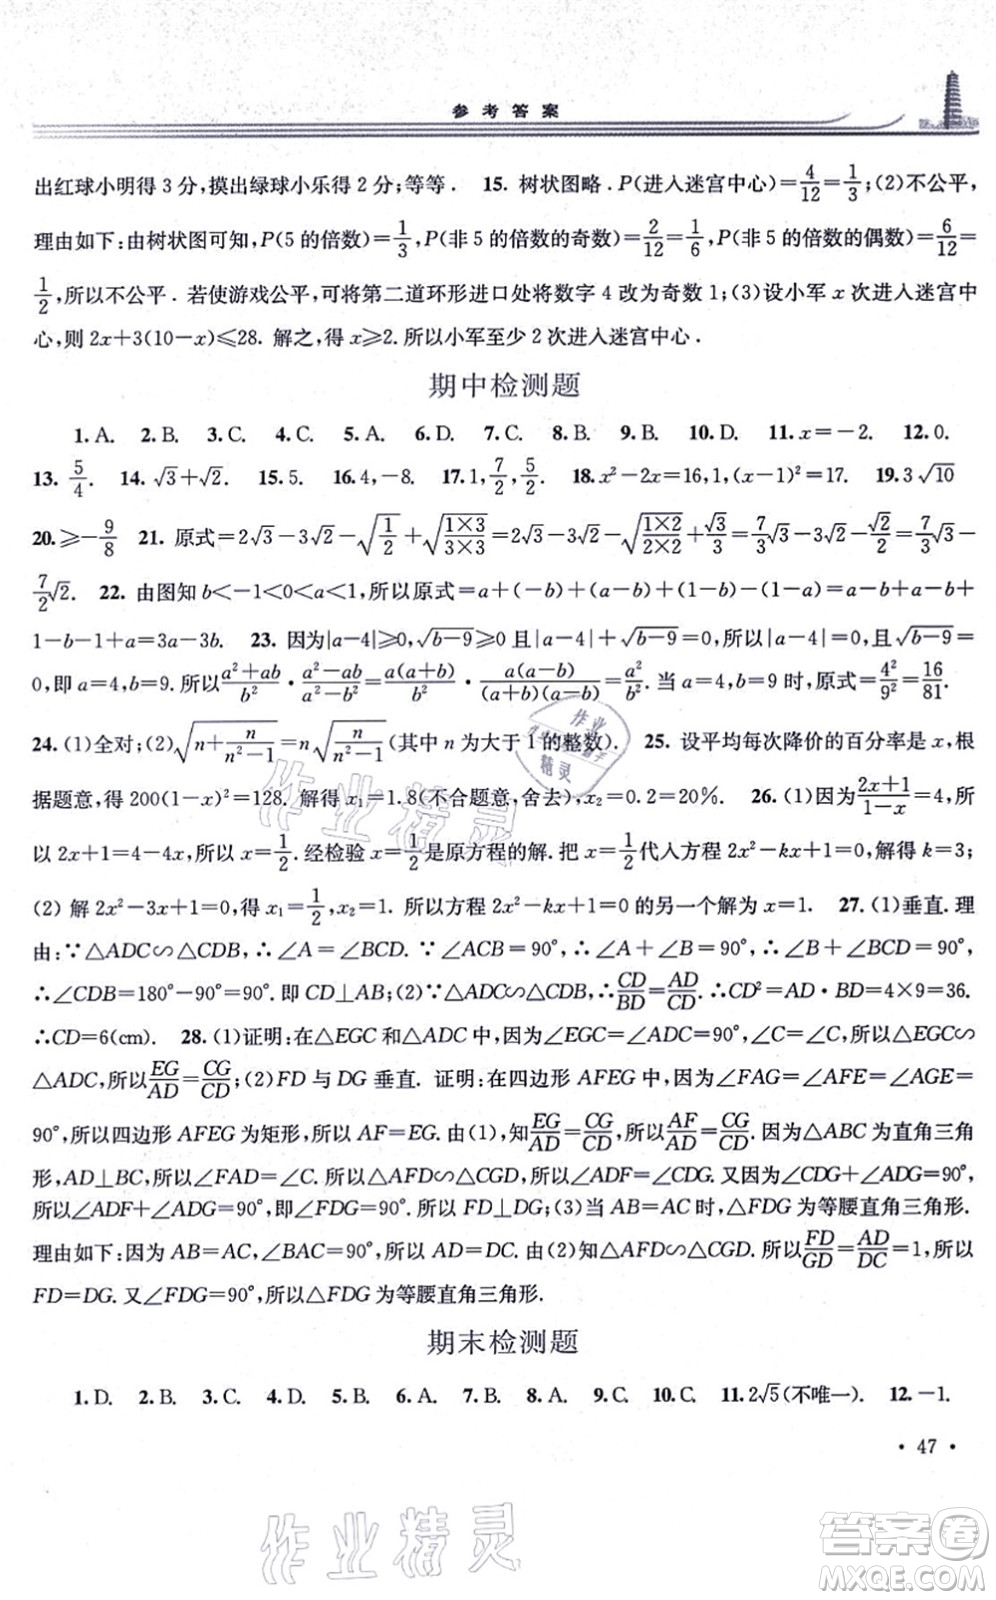 参考答案
出红球小明得3分,摸出绿球小乐得2分;等等. 15. 树状图略.P(进入迷宫中心)=4/12=1/3;(2)不公平,
理由如下:由树状图可知,P(5的倍数)=1/3,P(非5的倍数的奇数)=2/12=1/6,P(非5的倍数的偶数)=6/12=
1/2,所以不公平. 若使游戏公平,可将第二道环形进口处将数字4改为奇数1;(3)设小军x次进入迷宫中
心,则2x+3(10-x)≤28. 解之,得x≥2.所以小军至少2次进入迷宫中心.
期中检测题
1. A. 2. B. 3. C. 4. C. 5. A. 6. D. 7. C. 8. B. 9. B. 10. D. 11. x=-2. 12. 0.
13. 5/4. 14. √3+√2. 15. 5. 16. 4,-8. 17. 1,7/2,5/2. 18. x²-2x=16,1,(x-1)²=17. 19. 3√10
20. ≥-9/8 21. 原式=2√3-3√2-√(1/2)+√((1×3)/(3×3))=2√3-3√2-√((1×2)/(2×2))+√3/3=7/3√3-3√2-√2/2=7/3√3-
7/2√2. 22. 由图知b<-1<0<a<1,所以原式=a+(-b)+(-b)-(-a)=a-b+a-b+
1-b-1+a=3a-3b. 23. 因为|a-4|≥0,√(b-9)≥0且|a-4|+√(b-9)=0,所以|a-4|=0,√(b-9)=
0,即a=4,b=9. 所以(a²+ab)/b²·(a²-ab)/(a²-b²)=a(a+b)/b²·a(a-b)/((a+b)(a-b))=a²/b². 当a=4,b=9时,原式=4²/9²=16/81.
24. (1)全对;(2)√(n+n/(n²-1))=n√(n/(n²-1))(其中n为大于1的整数). 25. 设平均每次降价的百分率是x,根
据题意,得200(1-x)²=128. 解得x₁=1.8(不合题意,舍去),x₂=0.2=20%. 26. (1)因为(2x+1)/(1-x)=4,所
以2x+1=4-4x,所以x=1/2. 经检验x=1/2是原方程的解. 把x=1/2代入方程2x²-kx+1=0,解得k=3;
(2)解2x²-3x+1=0,得x₁=1/2,x₂=1. 所以方程2x²-kx+1=0的另一个解为x=1. 27. (1)垂直. 理
由:∵△ADC∽△CDB,∴∠A=∠BCD. ∵∠ACB=90°,∴∠A+∠B=90°,∴∠B+∠BCD=90°,
∴∠CDB=180°-90°=90°. 即CD⊥AB;(2)∵△ADC∽△CDB,∴CD/BD=AD/CD. ∴CD²=AD·BD=4×9=36.
∴CD=6(cm). 28. (1)证明:在△EGC和△ADC中,因为∠EGC=∠ADC=90°,∠C=∠C,所以△EGC∽
△ADC,所以EG/AD=CG/CD;(2)FD与DG垂直. 证明:在四边形AFEG中,因为∠FAG=∠AFE=∠AGE=
90°,所以四边形AFEG为矩形,所以AF=EG. 由(1),知EG/AD=CG/CD,所以AF/AD=CG/CD. 因为△ABC为直角三角
形,AD⊥BC,所以∠FAD=∠C. 所以△AFD∽△CGD,所以∠ADF=∠CDG. 又因为∠CDG+∠ADG=90°,
所以∠ADF+∠ADG=90°,即∠FDG=90°. 所以FD⊥DG;(3)当AB=AC时,△FDG为等腰直角三角形.
理由如下:因为AB=AC,∠BAC=90°,所以AD=DC. 由(2)知△AFD∽△CGD. 所以FD/GD=AD/DC=1,所以
FD=DG. 又∠FDG=90°,所以△FDG为等腰直角三角形.
期末检测题
1. D. 2. B. 3. C. 4. D. 5. B. 6. A. 7. B. 8. A. 9. C. 10. C. 11. 2√5(不唯一). 12. -1.
· 47 ·
作业精灵
作业精灵
作业
精灵
答案圈
MXQE.COM